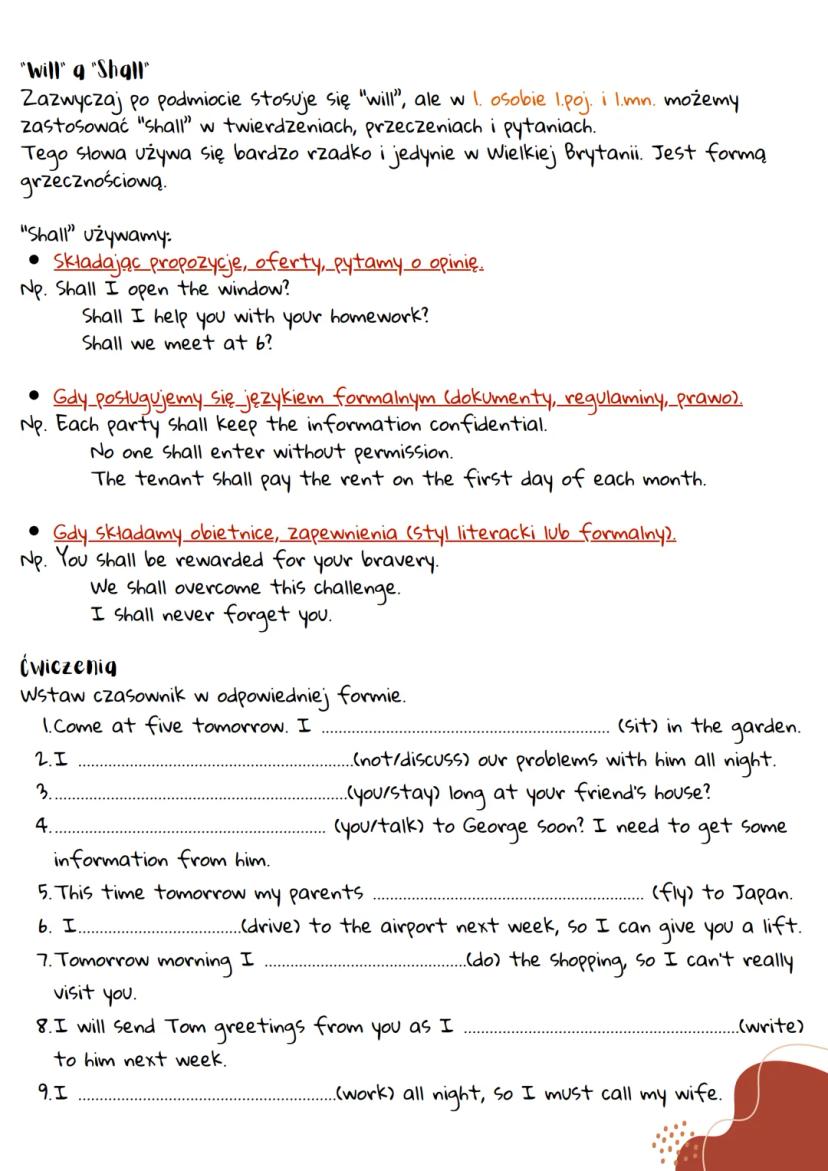 "Will" a "Shall"
Zazwyczaj po podmiocie stosuje się "will", ale w 1. osobie l.poj. i l.mn. możemy
zastosować "shall" w twierdzeniach, przeczeniach i pytaniach.
Tego słowa używa się bardzo rzadko i jedynie w Wielkiej Brytanii. Jest formą
grzecznościową.
"Shall" używamy:
• Składając propozycje, oferty, pytamy o opinię.
Np. Shall I open the window?
Shall I help you with your homework?
Shall we meet at 6?
• Gdy posługujemy się językiem formalnym (dokumenty, regulaminy, prawo).
Np. Each party shall keep the information confidential.
No one shall enter without permission.
The tenant shall pay the rent on the first day of each month.
• Gdy składamy obietnice, zapewnienia (styl literacki lub formalny).
Np. You shall be rewarded for your bravery.
We shall overcome this challenge.
I shall never forget you.
Ćwiczenia
Wstaw czasownik w odpowiedniej formie.
1. Come at five tomorrow. I .................................................................. (sit) in the garden.
2. I ...............................................................(not/discuss) our problems with him all night.
3. ...................................................................(you/stay) long at your friend's house?
4. .............................................................. (you/talk) to George soon? I need to get some
information from him.
5. This time tomorrow my parents .............................................................. (fly) to Japan.
6. I.....................................(drive) to the airport next week, so I can give you a lift.
7. Tomorrow morning I ..............................................(do) the shopping, so I can't really
visit you.
8. I will send Tom greetings from you as I ...............................................................(write)
to him next week.
9. I ...........................................................(work) all night, so I must call my wife.